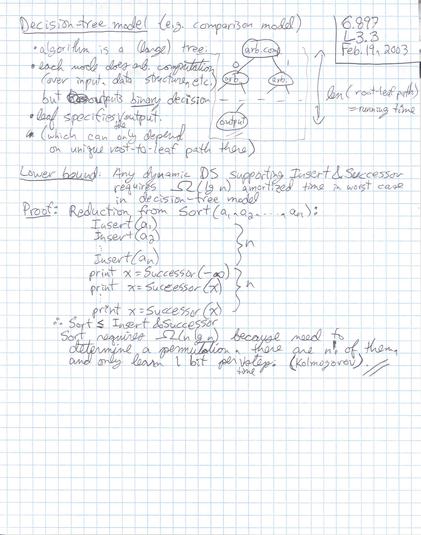 Decision-tree model (e.g. comparison model)
6.897
L3.3
Feb. 19, 2003
• algorithm is a (large) tree:
• each node does arb. computation
(over input, data structure, etc.)
but outputs binary decision
• leaf specifies the output.
(which can only depend
on unique root-to-leaf path there)
arb. comp.
arb.
arb.
output
len(root-leaf path)
= running time
Lower bound: Any dynamic DS supporting Insert & Successor
requires Ω(lg n) amortized time in worst case
in decision-tree model
Proof: Reduction from Sort(a₁, a₂, ..., aₙ):
Insert(a₁)
Insert(a₂)
⋮
Insert(aₙ)
} n
print x = Successor(-∞)
print x = Successor(x)
⋮
print x = Successor(x)
} n
∴ Sort ≤ Insert & Successor
Sort requires Ω(n lg n) because need to
determine a permutation, there are n! of them,
and only learn 1 bit per time step. (Kolmogorov)